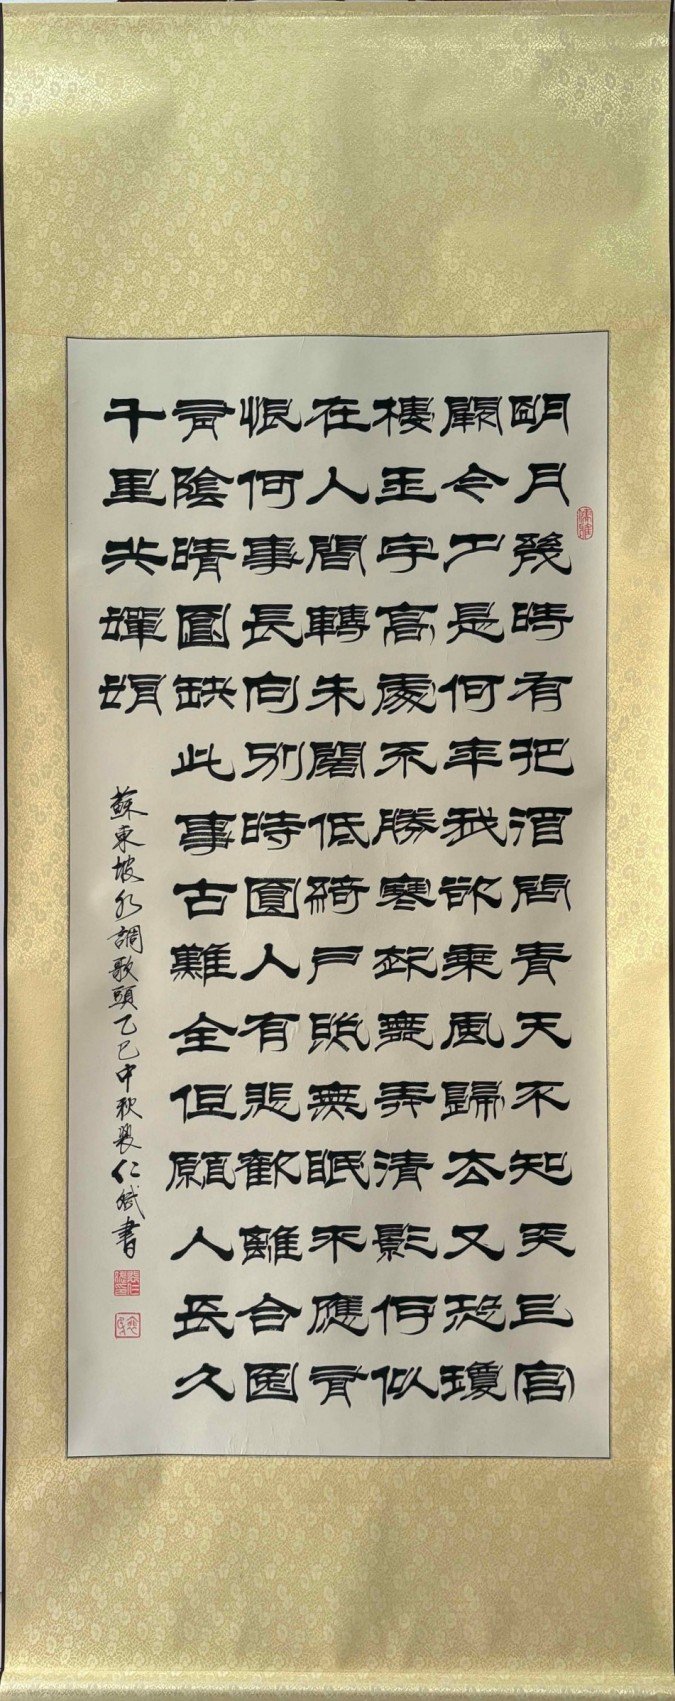 明月幾時有把酒問青天不知天上宮
闕今夕是何年我欲乘風歸去又恐瓊
樓玉宇高處不勝寒起舞弄清影何似
在人間轉朱閣低綺戶照無眠不應有
恨何事長向別時圓人有悲歡離合月
有陰晴圓缺此事古難全但願人長久
千里共嬋娟
蘇東坡水調歌頭乙巳中秋仁斌書